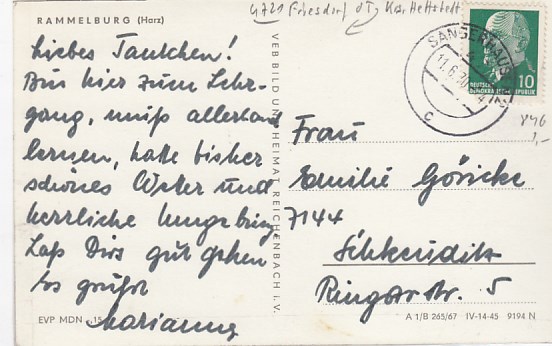 RAMMELBURG (Harz)
4721 Friesdorf OT, Kr. Hettstedt
Liebes Tantchen!
Bin hier zum Lehr-
gang, muß allerhand
lernen, hatte bisher
schönes Wetter und
herrliche Umgebung,
Laß Dirs gut gehen
es grüßt
Marianne
EVP MDN -.15
VEB BILD UND HEIMAT REICHENBACH i. V.
SANGERHAUSEN
11.6.70
c
10
DEUTSCHE
DEMOKRATISCHE REPUBLIK
846
1,-
Frau
Emilie Göricke
7144
Schkeuditz
Ringstr. 5
A 1/B 265/67 IV-14-45 9194 N